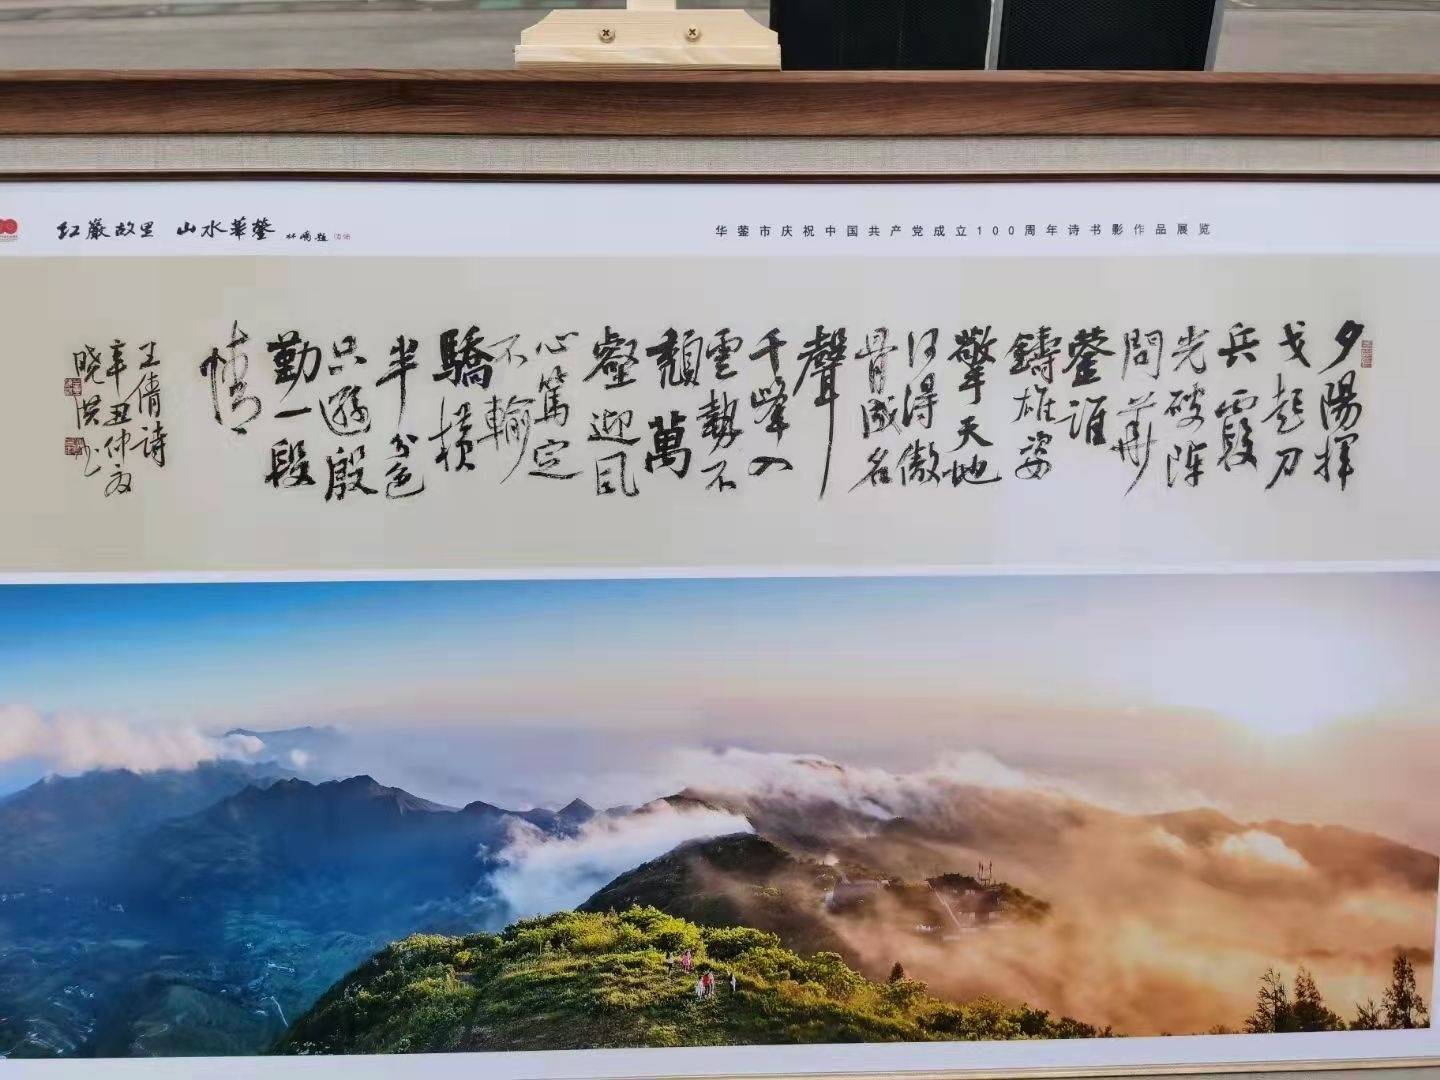 红巖故里 山水華蓥
华蓥市庆祝中国共产党成立100周年诗书影作品展览
夕陽揮
戈起刀
兵霞
光破陣
問華
蓥誰
鑄雄姿
擎天地
得傲
骨成名
聲
千峰入
雲勢不
頹萬
壑迎風
心篤定
不輸
驕橫
半分色
只遜殷
勤一段
情
王倩诗
辛丑仲夏
晓洪书